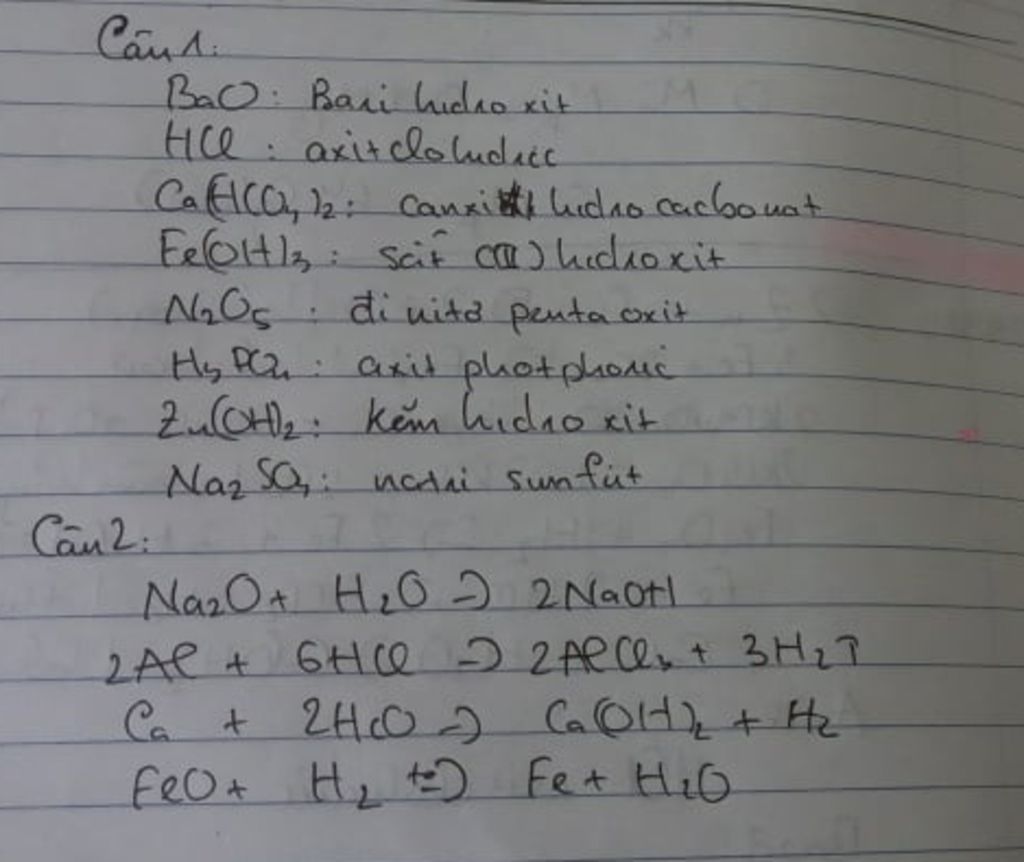 Câu 1:
BaO: Bari hidroxit
HCl: axit clohidric
Ca(HCO3)2: canxi hidrocacbonat
Fe(OH)3: sắt (III) hidroxit
N2O5: đi nitơ penta oxit
H3PO4: axit photphoric
Zn(OH)2: kẽm hidroxit
Na2SO3: natri sunfit
Câu 2:
Na2O + H2O → 2NaOH
2Al + 6HCl → 2AlCl3 + 3H2↑
Ca + 2H2O → Ca(OH)2 + H2
FeO + H2 t°→ Fe + H2O